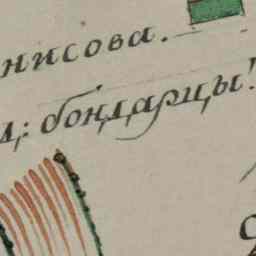 нисова.
д: бондарцы